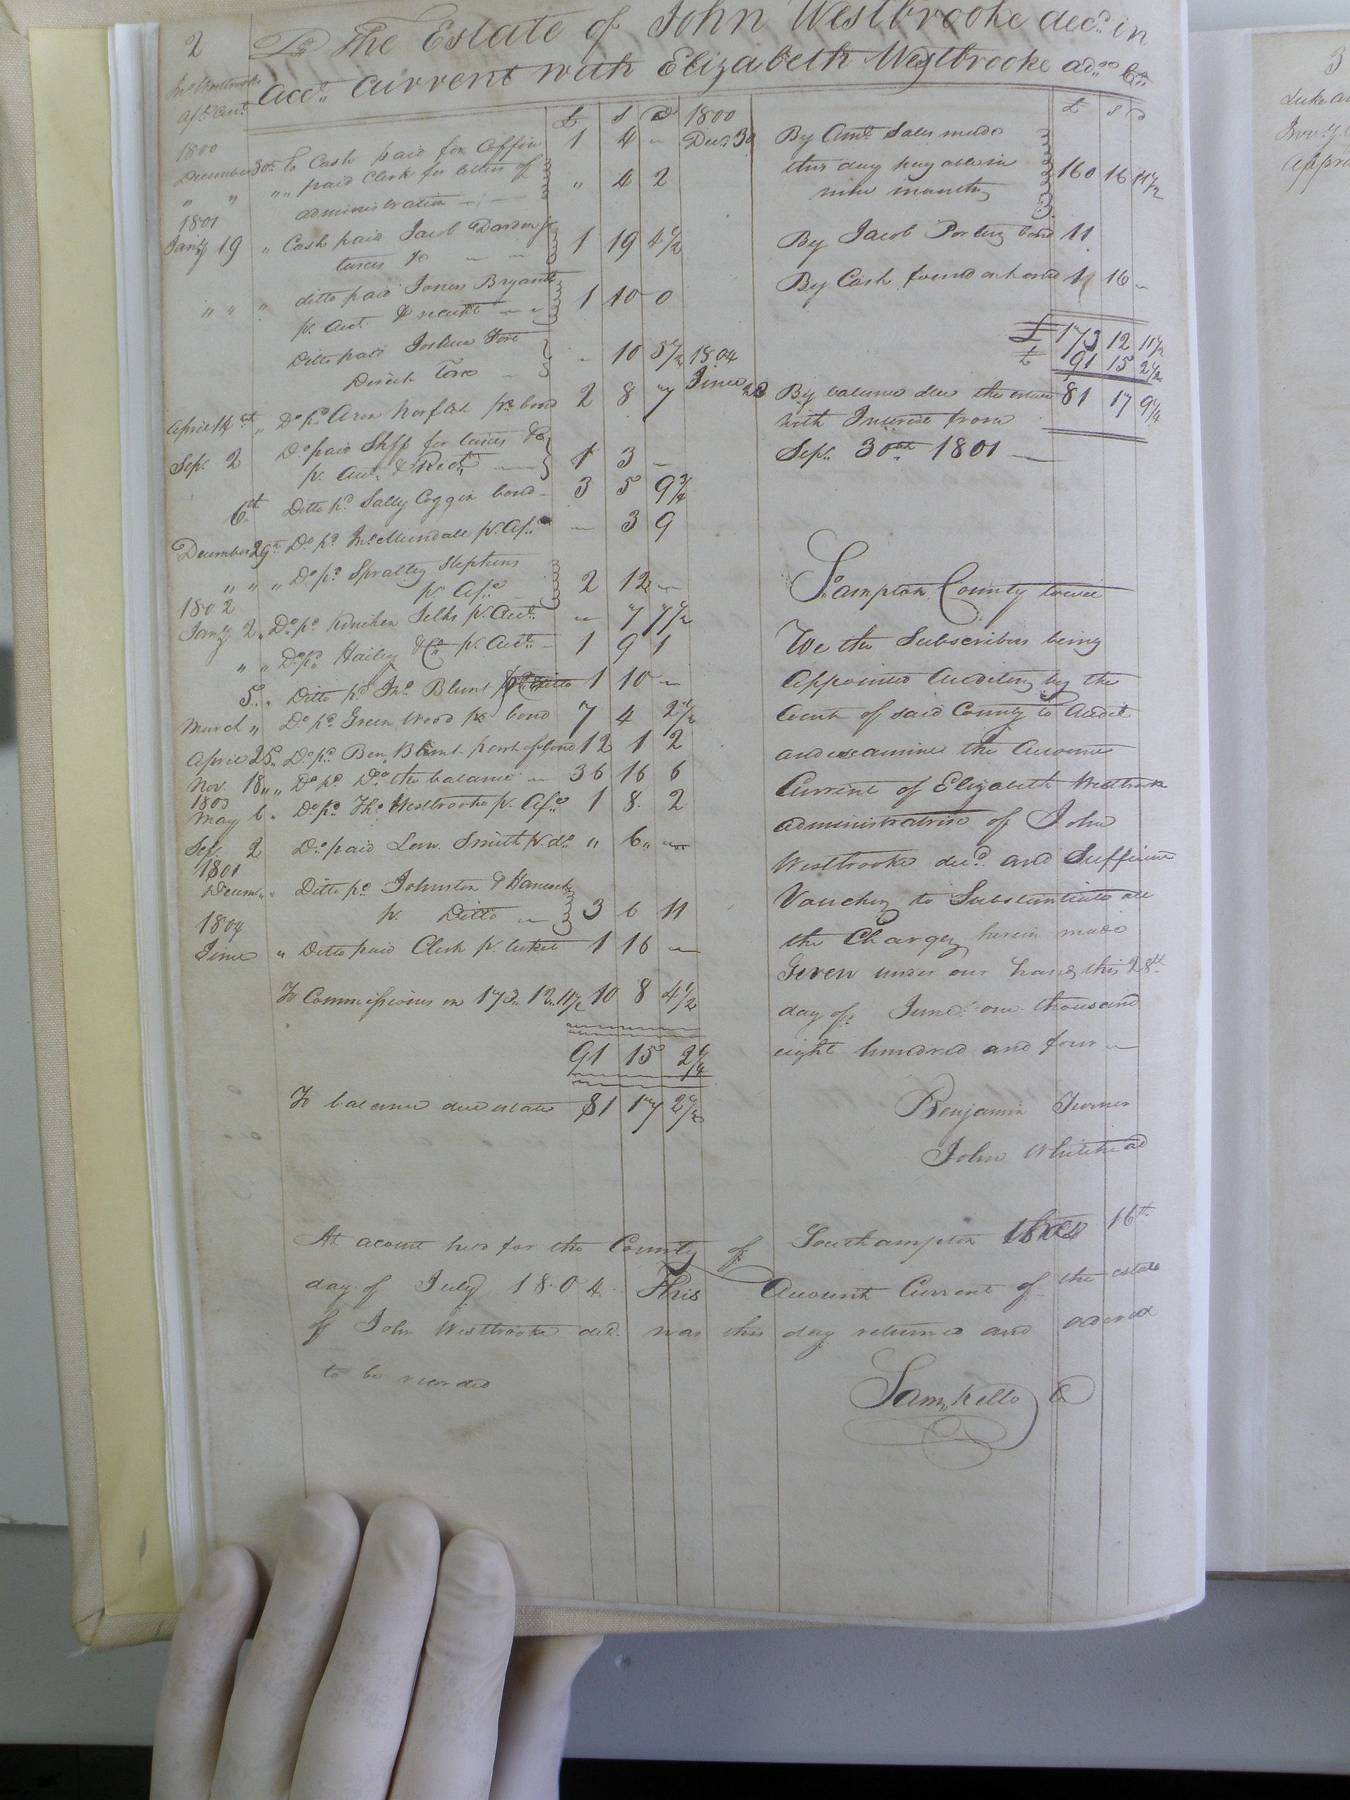 2
Dr The Estate of John Westbrooke decd. in
acct. Current with Elizabeth Westbrooke admx Cr.
£ s d
1800
December 30th To Cash paid for Coffin 1 4 -
" " " " paid Clerk for letters of
administration " 4 2
1801
Jany 19 " Cash paid Jacob Darden for
taxes &c 1 19 4 1/2
" " " ditto paid James Bryant
pr. Acct. & receipt 1 10 0
Ditto paid Joshua Fort
Direct Tax - 10 5 1/2
April 14th " Do pd Aron Norfleet pr. bond 2 8 7
Sepr. 2 Do paid Shff for taxes &c
pr. Acct. & Rect. 1 3 -
6th Ditto pd Sally Coggin bond 3 5 9 3/4
December 29th Do pd Jno. Mundall pr. Afs. - 3 9
" " " Do pd Spratley Stephens
pr. Afs. 2 12 -
1802
Jany 2 " Do pd Kinchen Selks pr. Acct. - 7 7 1/2
" " Do pd Hailey & Co pr. Acct. 1 9 1
5 " Ditto pd Jno Blunt pr. Ditto 1 10 -
March " Do pd Green Wood pr. bond 7 4 2 1/2
April 25 " Do pd Ben. Blunt part of bond 12 1 2
Nov. 18 " " Do pd Do the balance 36 16 6
1803
May 6 " Do pd Tho Westbrooke pr. Afs. 1 8 2
Sepr. 2 Do paid Law. Smith pr. do " 6 " -
1801
Decem. " Ditto pd Johnston & Hancock
pr. Ditto 3 6 11
1804
June " Ditto paid Clerk pr. ticket 1 16 -
To Commissions on 173 " 12 " 11 1/2 10 8 4 1/2
91 15 2 1/4
To balance due estate 81 17 2 1/2
£ s d
1800
Decr. 30 By Amt. Sales made
this day payable in
nine months 160 16 11 1/2
By Jacob Porters bond 11
By Cash found on hand 1 16 -
£ 173 12 11 1/2
£ 91 15 2 1/4
1804
June 28 By balance due the estate 81 17 9 1/4
with Interest from
Sepr. 30th 1801
Sampton County towit
We the Subscribers being
Appointed Auditors by the
Court of said County to Audit
and examine the Account
Current of Elizabeth Westbrook
administratrix of John
Westbrooke decd. and Sufficient
Vouchers to Substantiate all
the Charges herein made
Given under our hands this 28th
day of June one thousand
eight hundred and four
Benjamin Turner
John Whitehead
At acourt held for the County of Southampton 16th
day of July 1804 This Account Current of the estate
of John Westbrooke decd. was this day returned and ordered
to be recorded
Saml. Kello C
3